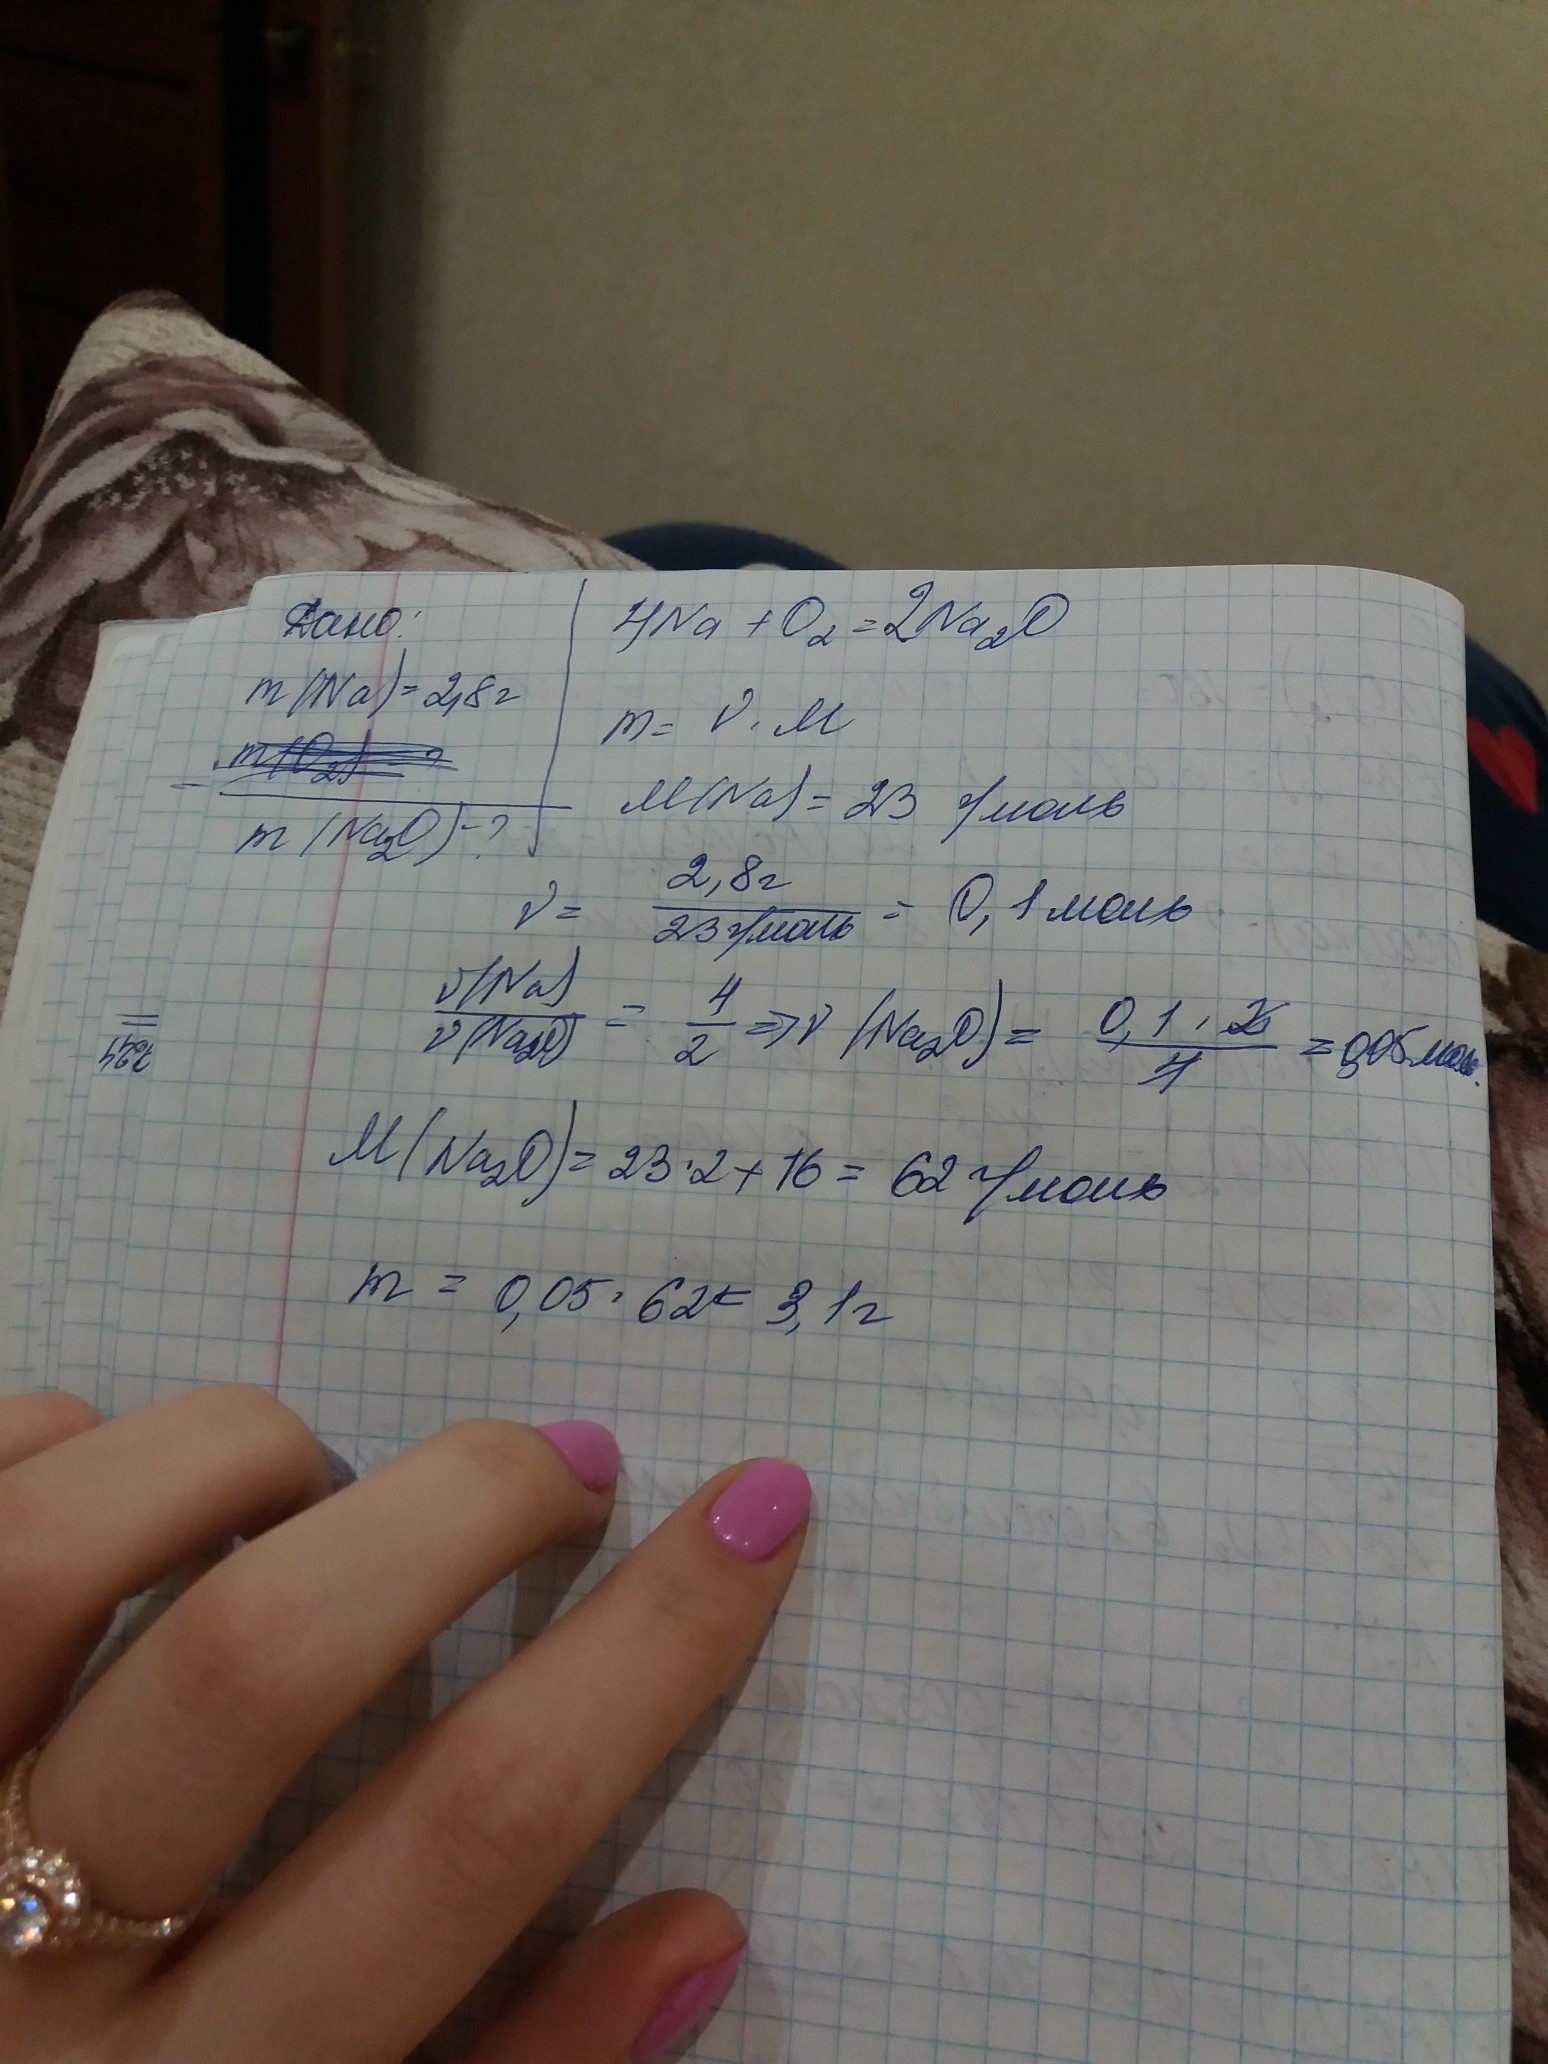 Дано:
m(Na)=2,8г
m(O2)=?
m(Na2O)-?
4Na+O2=2Na2O
m= ν·M
M(Na)=23 г/моль
ν= 2,8г/23г/моль = 0,1моль
ν(Na)/ν(Na2O) = 4/2 => ν(Na2O)= 0,1·2/4 =0,05моль.
M(Na2O)=23·2+16=62г/моль
m = 0,05·62=3,1г